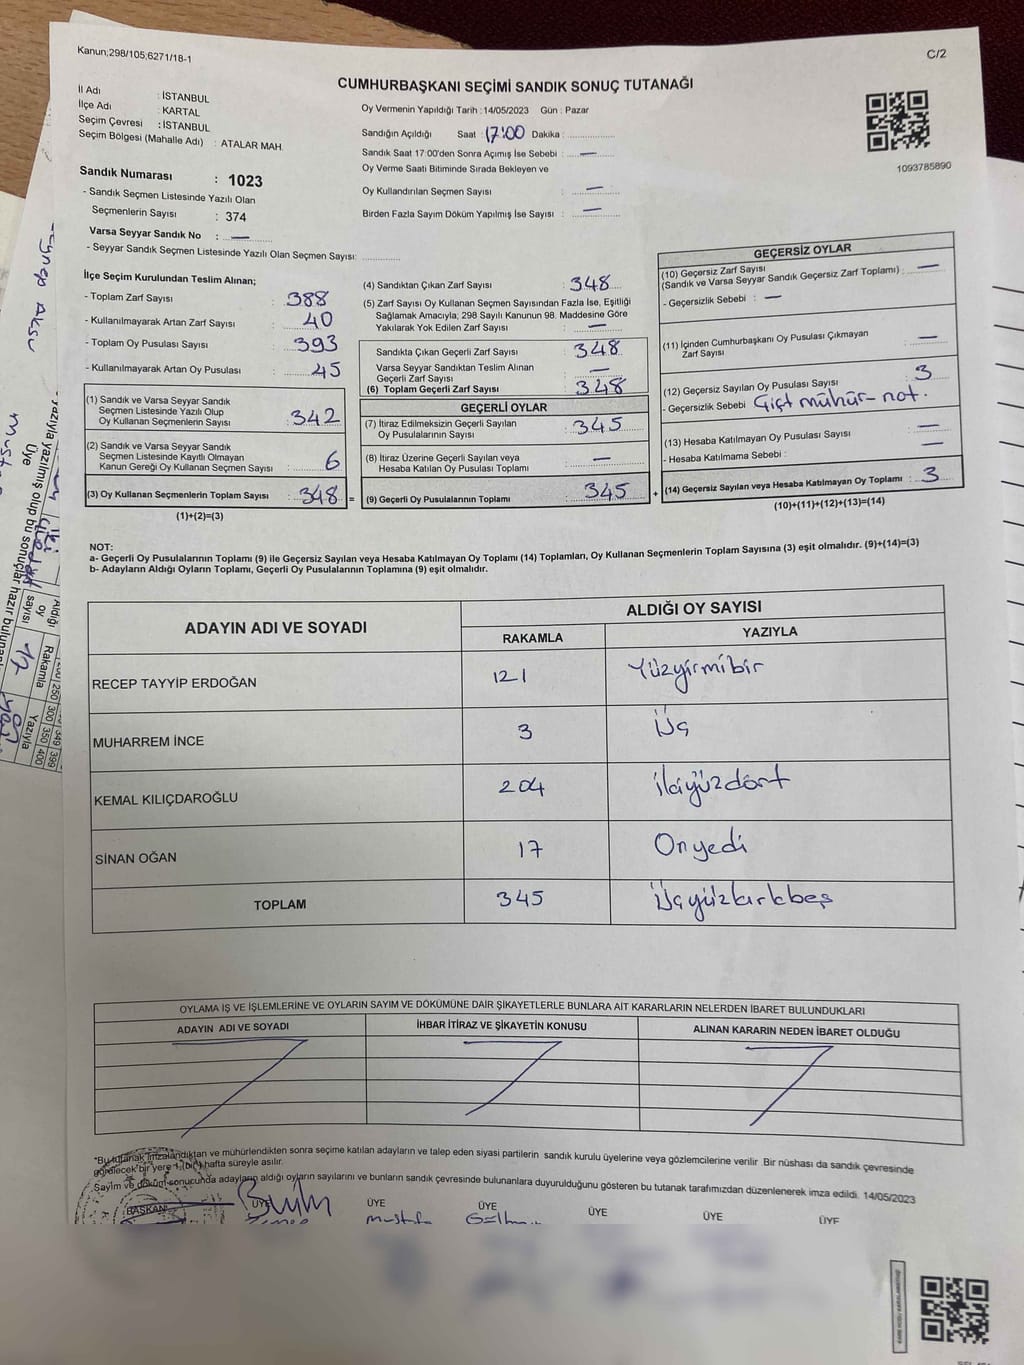 Kanun;298/105;6271/18-1
C/2
CUMHURBAŞKANI SEÇİMİ SANDIK SONUÇ TUTANAĞI
İl Adı : İSTANBUL
İlçe Adı : KARTAL
Seçim Çevresi : İSTANBUL
Seçim Bölgesi (Mahalle Adı) : ATALAR MAH.
Sandık Numarası : 1023
- Sandık Seçmen Listesinde Yazılı Olan
Seçmenlerin Sayısı : 374
Varsa Seyyar Sandık No : —
- Seyyar Sandık Seçmen Listesinde Yazılı Olan Seçmen Sayısı: ............
Oy Vermenin Yapıldığı Tarih : 14/05/2023 Gün : Pazar
Sandığın Açıldığı Saat : 17:00 Dakika : ............
Sandık Saat 17:00'den Sonra Açımış İse Sebebi : —
Oy Verme Saati Bitiminde Sırada Bekleyen ve
Oy Kullandırılan Seçmen Sayısı : —
Birden Fazla Sayım Döküm Yapılmış İse Sayısı : —
1093785890
İlçe Seçim Kurulundan Teslim Alınan;
- Toplam Zarf Sayısı : 388
- Kullanılmayarak Artan Zarf Sayısı : 40
- Toplam Oy Pusulası Sayısı : 393
- Kullanılmayarak Artan Oy Pusulası : 45
(1) Sandık ve Varsa Seyyar Sandık
Seçmen Listesinde Yazılı Olup
Oy Kullanan Seçmenlerin Sayısı : 342
(2) Sandık ve Varsa Seyyar Sandık
Seçmen Listesinde Kayıtlı Olmayan
Kanun Gereği Oy Kullanan Seçmen Sayısı : 6
(3) Oy Kullanan Seçmenlerin Toplam Sayısı : 348 =
(1)+(2)=(3)
(4) Sandıktan Çıkan Zarf Sayısı : 348
(5) Zarf Sayısı Oy Kullanan Seçmen Sayısından Fazla İse, Eşitliği
Sağlamak Amacıyla; 298 Sayılı Kanunun 98. Maddesine Göre
Yakılarak Yok Edilen Zarf Sayısı : —
Sandıkta Çıkan Geçerli Zarf Sayısı : 348
Varsa Seyyar Sandıktan Teslim Alınan
Geçerli Zarf Sayısı : —
(6) Toplam Geçerli Zarf Sayısı : 348
GEÇERLİ OYLAR
(7) İtiraz Edilmeksizin Geçerli Sayılan
Oy Pusulalarının Sayısı : 345
(8) İtiraz Üzerine Geçerli Sayılan veya
Hesaba Katılan Oy Pusulası Toplamı : —
(9) Geçerli Oy Pusulalarının Toplamı : 345 +
GEÇERSİZ OYLAR
(10) Geçersiz Zarf Sayısı
(Sandık ve Varsa Seyyar Sandık Geçersiz Zarf Toplamı) : —
- Geçersizlik Sebebi : —
(11) İçinden Cumhurbaşkanı Oy Pusulası Çıkmayan
Zarf Sayısı : —
(12) Geçersiz Sayılan Oy Pusulası Sayısı : 3
- Geçersizlik Sebebi : Çift mühür - not.
(13) Hesaba Katılmayan Oy Pusulası Sayısı : —
- Hesaba Katılmama Sebebi : —
(14) Geçersiz Sayılan veya Hesaba Katılmayan Oy Toplamı : 3
(10)+(11)+(12)+(13)=(14)
NOT:
a- Geçerli Oy Pusulalarının Toplamı (9) ile Geçersiz Sayılan veya Hesaba Katılmayan Oy Toplamı (14) Toplamları, Oy Kullanan Seçmenlerin Toplam Sayısına (3) eşit olmalıdır. (9)+(14)=(3)
b- Adayların Aldığı Oyların Toplamı, Geçerli Oy Pusulalarının Toplamına (9) eşit olmalıdır.
ADAYIN ADI VE SOYADI
ALDIĞI OY SAYISI
RAKAMLA YAZIYLA
RECEP TAYYİP ERDOĞAN 121 Yüzyirmibir
MUHARREM İNCE 3 Üç
KEMAL KILIÇDAROĞLU 204 ikiyüzdört
SİNAN OĞAN 17 Onyedi
TOPLAM 345 Üçyüzkırkbeş
OYLAMA İŞ VE İŞLEMLERİNE VE OYLARIN SAYIM VE DÖKÜMÜNE DAİR ŞİKAYETLERLE BUNLARA AİT KARARLARIN NELERDEN İBARET BULUNDUKLARI
ADAYIN ADI VE SOYADI İHBAR İTİRAZ VE ŞİKAYETİN KONUSU ALINAN KARARIN NEDEN İBARET OLDUĞU
"Bu tutanak imzalandıktan ve mühürlendikten sonra seçime katılan adayların ve talep eden siyasi partilerin sandık kurulu üyelerine veya gözlemcilerine verilir. Bir nüshası da sandık çevresinde
görülecek bir yere 1 (bir) hafta süreyle asılır.
Sayım ve döküm sonucunda adayların aldığı oyların sayılarını ve bunların sandık çevresinde bulunanlara duyurulduğunu gösteren bu tutanak tarafımızdan düzenlenerek imza edildi. 14/05/2023
BAŞKAN ÜYE ÜYE ÜYE ÜYE ÜYE ÜYE
Mustafa